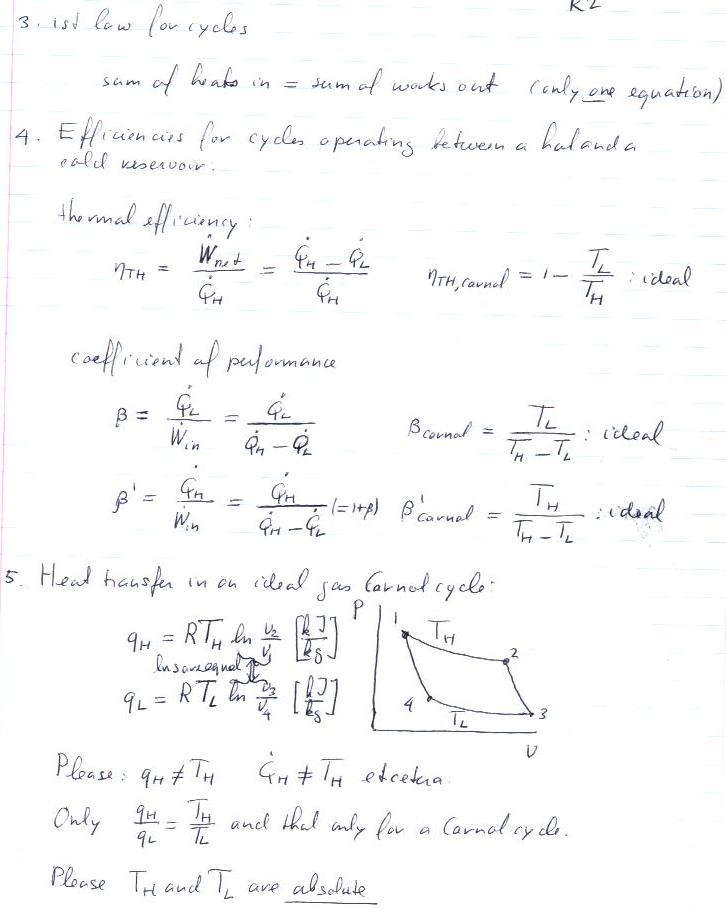 R2
3. 1st law for cycles
sum of heats in = sum of works out (only one equation)
4. Efficiencies for cycles operating between a hot and a
cold reservoir.
thermal efficiency:
η_TH = Ẇnet / Q̇_H = (Q̇_H − Q̇_L) / Q̇_H    η_TH, carnot = 1 − T_L / T_H : ideal
coefficient of performance
β = Q̇_L / Ẇin = Q̇_L / (Q̇_H − Q̇_L)    β carnot = T_L / (T_H − T_L) : ideal
β' = Q̇_H / Ẇin = Q̇_H / (Q̇_H − Q̇_L) (=1+β)    β' carnot = T_H / (T_H − T_L) : ideal
5. Heat transfer in an ideal gas Carnot cycle:
q_H = R T_H ln v₂/v₁ [kJ/kg]
lns are equal
q_L = R T_L ln v₃/v₄ [kJ/kg]
P
1 T_H
2
4 T_L 3
v
Please: q_H ≠ T_H    Q̇_H ≠ T_H etcetera.
Only q_H / q_L = T_H / T_L and that only for a Carnot cycle.
Please T_H and T_L are absolute